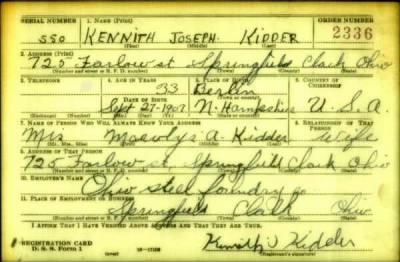 SERIAL NUMBER 1. NAME (Print) ORDER NUMBER
550 KENNITH JOSEPH KIDDER 2336
(First) (Middle) (Last)
2. ADDRESS (Print)
725 Farlow st Springfield Clark Ohio
(Number and street or R. F. D. number) (Town) (County) (State)
3. TELEPHONE 4. AGE IN YEARS 5. PLACE OF BIRTH 6. COUNTRY OF CITIZENSHIP
33 Berlin
DATE OF BIRTH (Town or county)
Sept-27-1907 N. Hampshire U.S.A
(Exchange) (No.) (Mo.) (Day) (Yr.) (State or country)
7. NAME OF PERSON WHO WILL ALWAYS KNOW YOUR ADDRESS 8. RELATIONSHIP OF THAT PERSON
Mrs A. Kidder Wife
(Mr., Mrs., Miss) (First) (Middle) (Last)
9. ADDRESS OF THAT PERSON
725 Farlow st Springfield Clark Ohio
(Number and street or R. F. D. number) (Town) (County) (State)
10. EMPLOYER'S NAME
Ohio steel foundry Co
11. PLACE OF EMPLOYMENT OR BUSINESS
Springfield Clark Ohio
(Number and street or R. F. D. number) (Town) (County) (State)
I AFFIRM THAT I HAVE VERIFIED ABOVE ANSWERS AND THAT THEY ARE TRUE.
REGISTRATION CARD
D. S. S. Form 1 Kennith J Kidder
(Registrant's signature)